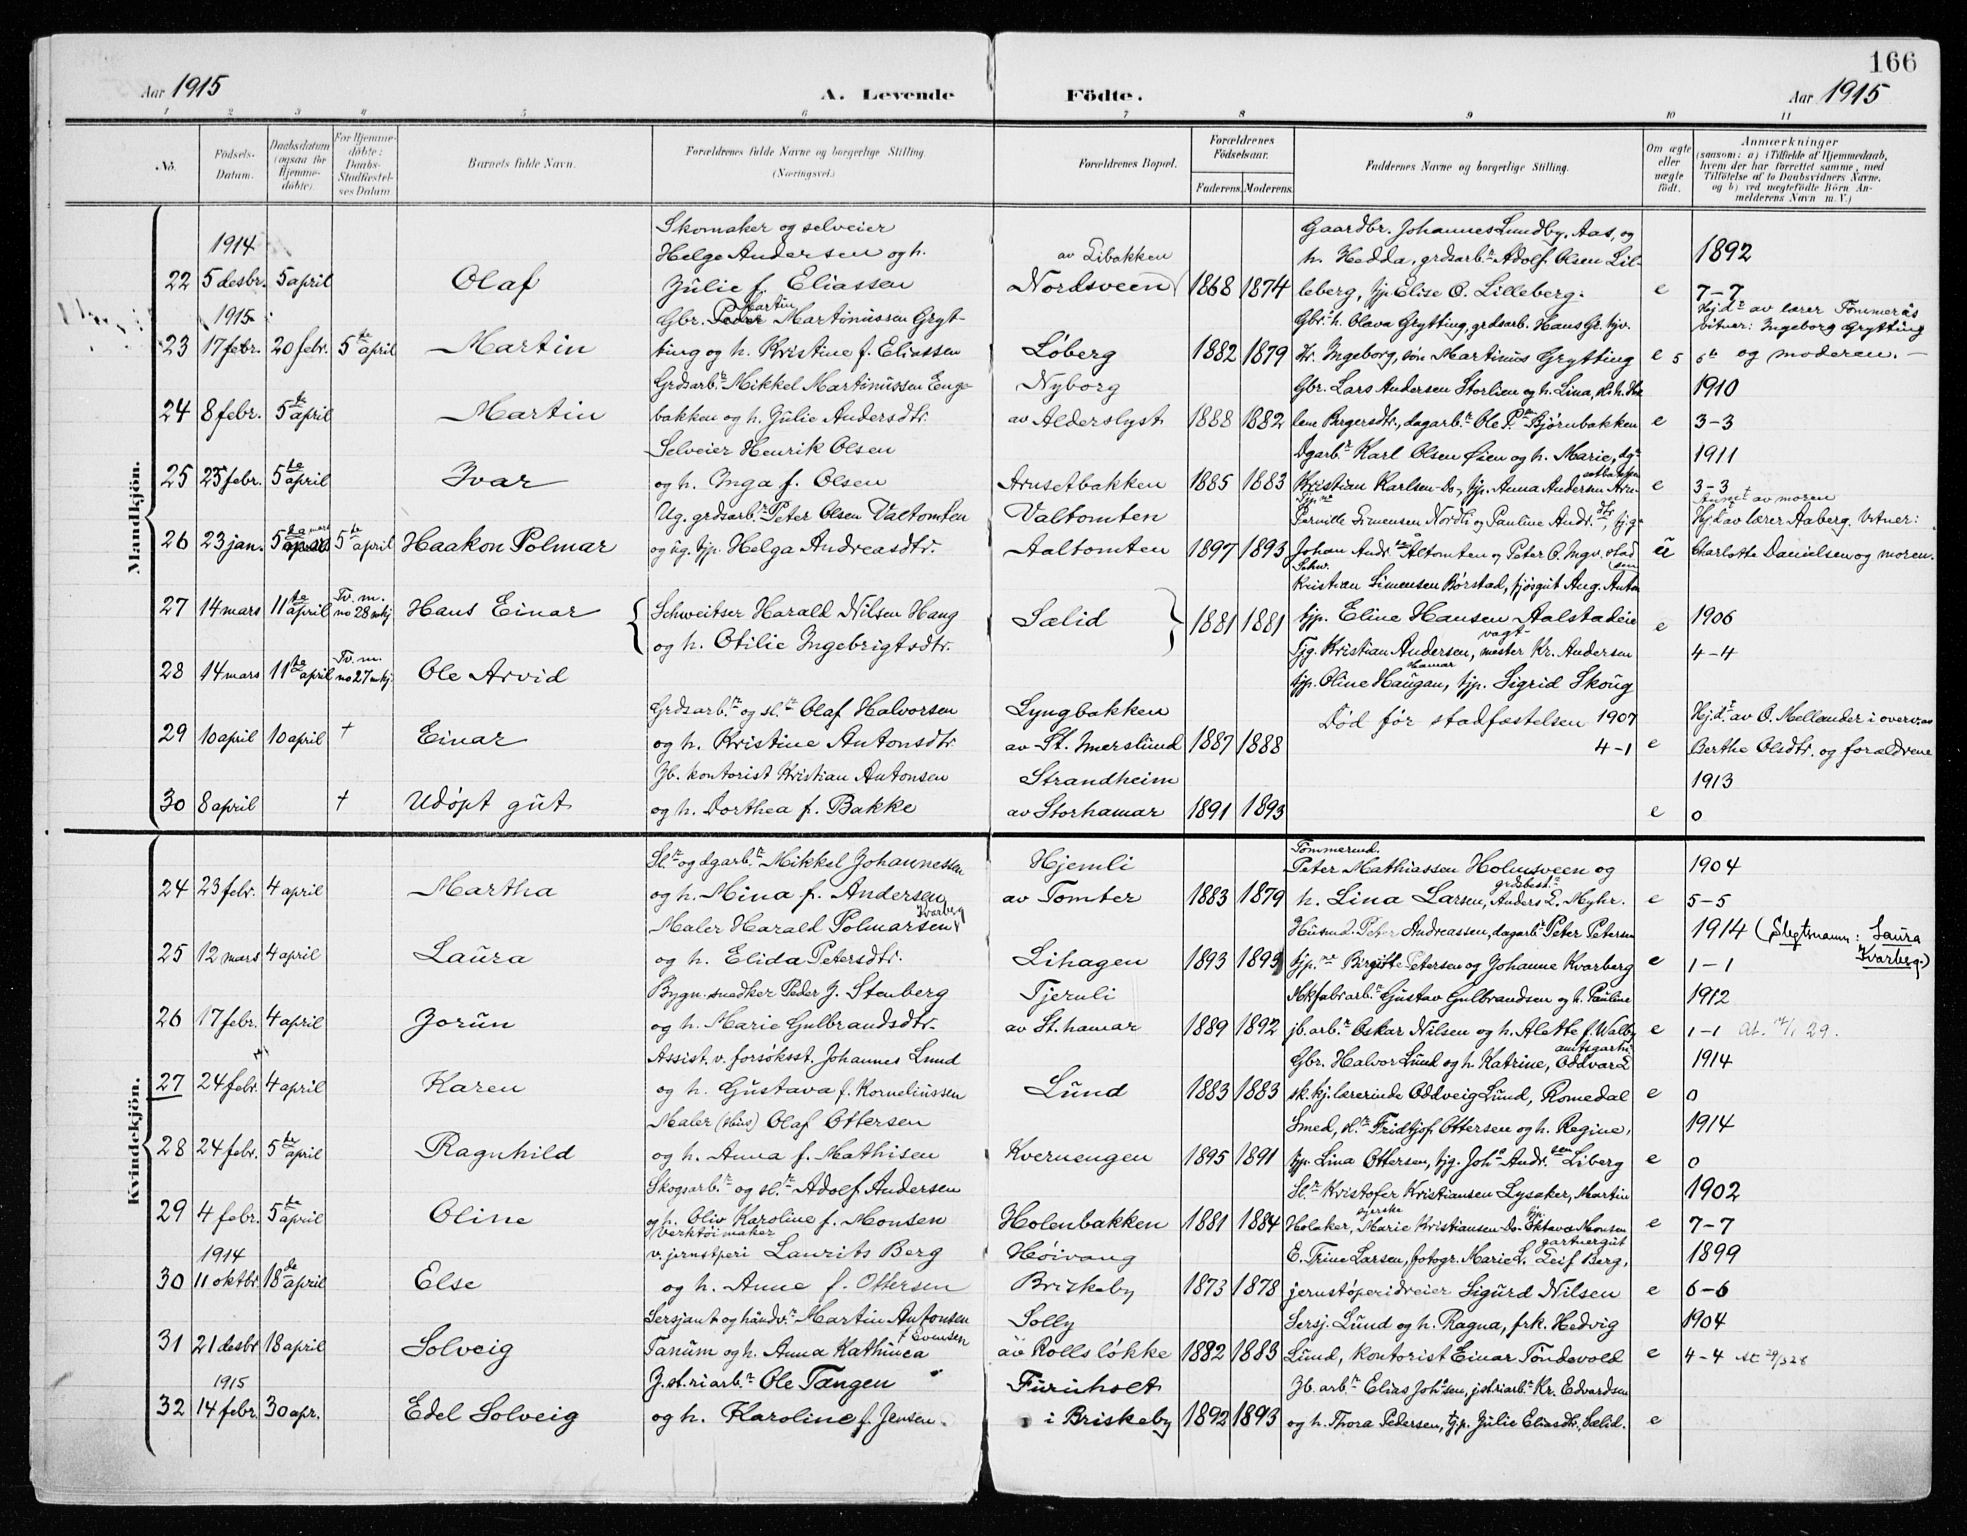 166
Aar 1915 A. Levende Födte. Aar 1915
1 2 3 4 5 6 7 8 9 10 11
No.
Födsels-Datum.
Daabsdatum (ogsaa for Hjemme-döbte).
For Hjemme-döbte: Daabs-Stadfæstel-ses Datum
Barnets fulde Navn.
Forældrenes fulde Navne og borgerlige Stilling. (Næringsvei.)
Forældrenes Bopæl.
Forældrenes Födselsaar.
Faderens. Moderens.
Faddernes Navne og borgerlige Stilling.
Om ægte eller uægte födt.
Anmærkninger
(saasom: a) i Tilfælde af Hjemmedaab,
hvem der har forrettet samme, med
Tilföielse af to Daabsvidners Navne,
og b) ved uægtefödte Börn An-
melderens Navn m. V.)
Mandkjön.
Skomaker og selveier Gaardbr. Johannes Lundby, Aas, og
1914 Helge Andersen og h. av Libakken h. Hedda, grdsarb. Adolf Olsen Lil- 1892
22 5 desbr. 5 april Olaf Julie f. Eliassen Nordsveen 1868 1874 leberg, tjp. Elise O. Lilleberg. e 7-7
1915 Gbr. Peder Martin Martinussen Gryt- Gbr. h. Olava Grytting, grdsarb. Hans Gr. Hjd. av lærer Tømmerås vitner: Ingeborg Grytting
23 17 febr. 20 febr. 5te april Martin ting og h. Kristine f. Eliassen Løberg 1882 1879 Ingeborg, søn Martinus Grytting e 5 og moderen.
Grdsarb. Mikkel Martinussen Enge- Nyborg Gbr. Lars Andersen Storlien og h. Lina, 1910
24 8 febr. 5te april Martin bakken og h. Julie Andersdtr. av Alderslyst 1888 1882 Birgersdtr., dagarb. Ole P. Bjørnbakken e 3-3
Selveier Henrik Olsen Dgarb. Karl Olsen Øien og h. Marie, 1911
25 25 febr. 5te april Ivar og h. Inga f. Olsen Arnsetbakken 1885 1883 Kristian Karlsen Do, tjp. Anna Andersen e 3-3
Ug. grdsarb. Peter Olsen Valtomten Valtomten Pernille Simensen Nordli og Pauline Andr. Anmeldt av moren Hjd. av lærer Aaberg. Vitner:
26 23 jan. 5te mars 5te april Haakon Polmar og ug. tjp. Helga Andreasdtr. Aaltomten 1897 1893 Johan Andr. Altomten og Peter O. u Charlotte Danielsen og moren.
Kristian Simensen Børstad, fjøsgut Aug. Anton
27 14 mars 11te april Tv. m. no 28 mkj Hans Einar Schweitser Harald Nilsen Haug Sælid 1881 1881 tjp. Eline Hansen Aalstadeie e 1906
og h. Otilie Ingebrigtsdtr. Tjg. Kristian Andersen, vagt-mester Kr. Andersen 4-4
28 14 mars 11te april Tv. m. no 27 mkj Ole Arvid tjp. Oline Haugan, Hamar tjp. Sigrid Skoug
Grdsarb. og sl. Olaf Halvorsen Lyngbakken Død før stadfæstelsen 1907 Hjd. av O. Mellander i overvær
29 10 april 10 april † Einar og h. Kristine Antonsdtr av St. Imerslund 1887 1888 4-1 e Berthe Olsdtr. og forældrene
Jb. kontorist Kristian Antonsen Strandheim 1913
30 8 april † Udøpt gut og h. Dorthea f. Bakke av Storhamar 1891 1893 e 0
Kvindekjön.
Sl. og dgarb. Mikkel Johannessen Hjemli Tømmermd. Peter Mathiassen Holmsveen og 1904
24 23 febr. 4 april Martha og h. Mina f. Andersen av Tomter 1883 1879 h. Lina Larsen, grdbest. Anders L. Myhr. e 5-5
Maler Harald Polmarsen Kvarberg Husmd. Peter Andreassen, dagarb. Peter Petersen 1914 (Slegtsnavn: Laura
25 12 mars 4 april Laura og h. Elida Petersdtr. Lihagen 1893 1893 tjp. Birgitte Petersen og Johanne Kvarberg e 1-1 Kvarberg.)
Bygn. snedker Peder J. Stenberg Tjernli Mkfabrarb. Gustav Gulbrandsen og h. Pauline 1912
26 17 febr. 4 april Jorun og h. Marie Gulbrandsdtr. av St.hamar 1889 1892 jb. arb. Oskar Nilsen og h. Alette f. Walby e 1-1
Assist. v. forsøksst. Johannes Lund Gbr. Halvor Lund og h. Katrine, amtsgartn. Oddvar L 1914
27 24 febr. 4 april Karen og h. Gustava f. Korneliussen Lund 1883 1883 sk. kj. lærerinde Oddveig Lund, Romedal e 0
Maler (Hus) Olaf Ottersen Smed, sl. Fridtjof Ottersen og h. Regine, 1914
28 24 febr. 5te april Ragnhild og h. Anna f. Mathisen Kvernengen 1895 1891 tjp. Lina Ottersen, tjg. Joh. Andr.sen Liberg e 0
Skogsarb. og sl. Adolf Andersen Sl. Kristofer Kristiansen Lysaker, Martin 1902
29 4 febr. 5te april Oline og h. Oliv Karoline f. Monsen Holenbakken 1881 1884 Holaker, syerske Marie Kristiansen Do. tjp. Oktava Monsen e 7-7
1914 Verktøimaker v. jernstperi Laurits Berg Høivang E. Trine Larsen, fotogr. Marie L. gartnergut Leif Berg, 1899
30 11 oktbr. 18de april Else og h. Anne f. Ottersen Briskeby 1873 1878 jernstøperidreier Sigurd Nilsen e 6-6
Sersjant og håndv. Martin Antonsen Solly Sersj. Lund og h. Ragna, frk. Hedvig 1904
31 21 desbr 18 april Solveig Tanum og h. Anna Kathinca f Evensen av Rollsløkke 1882 1883 Lund, kontorist Einar Tøndevold e 4-4
1915 J.st.riarb. Ole Tangen Furuholt Jb. arb. Elias Johsen, jstriarb. Kr. Edvardsen
32 14 febr. 30 apr. Edel Solveig og h. Karoline f. Jensen. i Briskeby 1892 1893 og h. Thora Pedersen, tjp. Julie Eliasdtr. Sælid. e